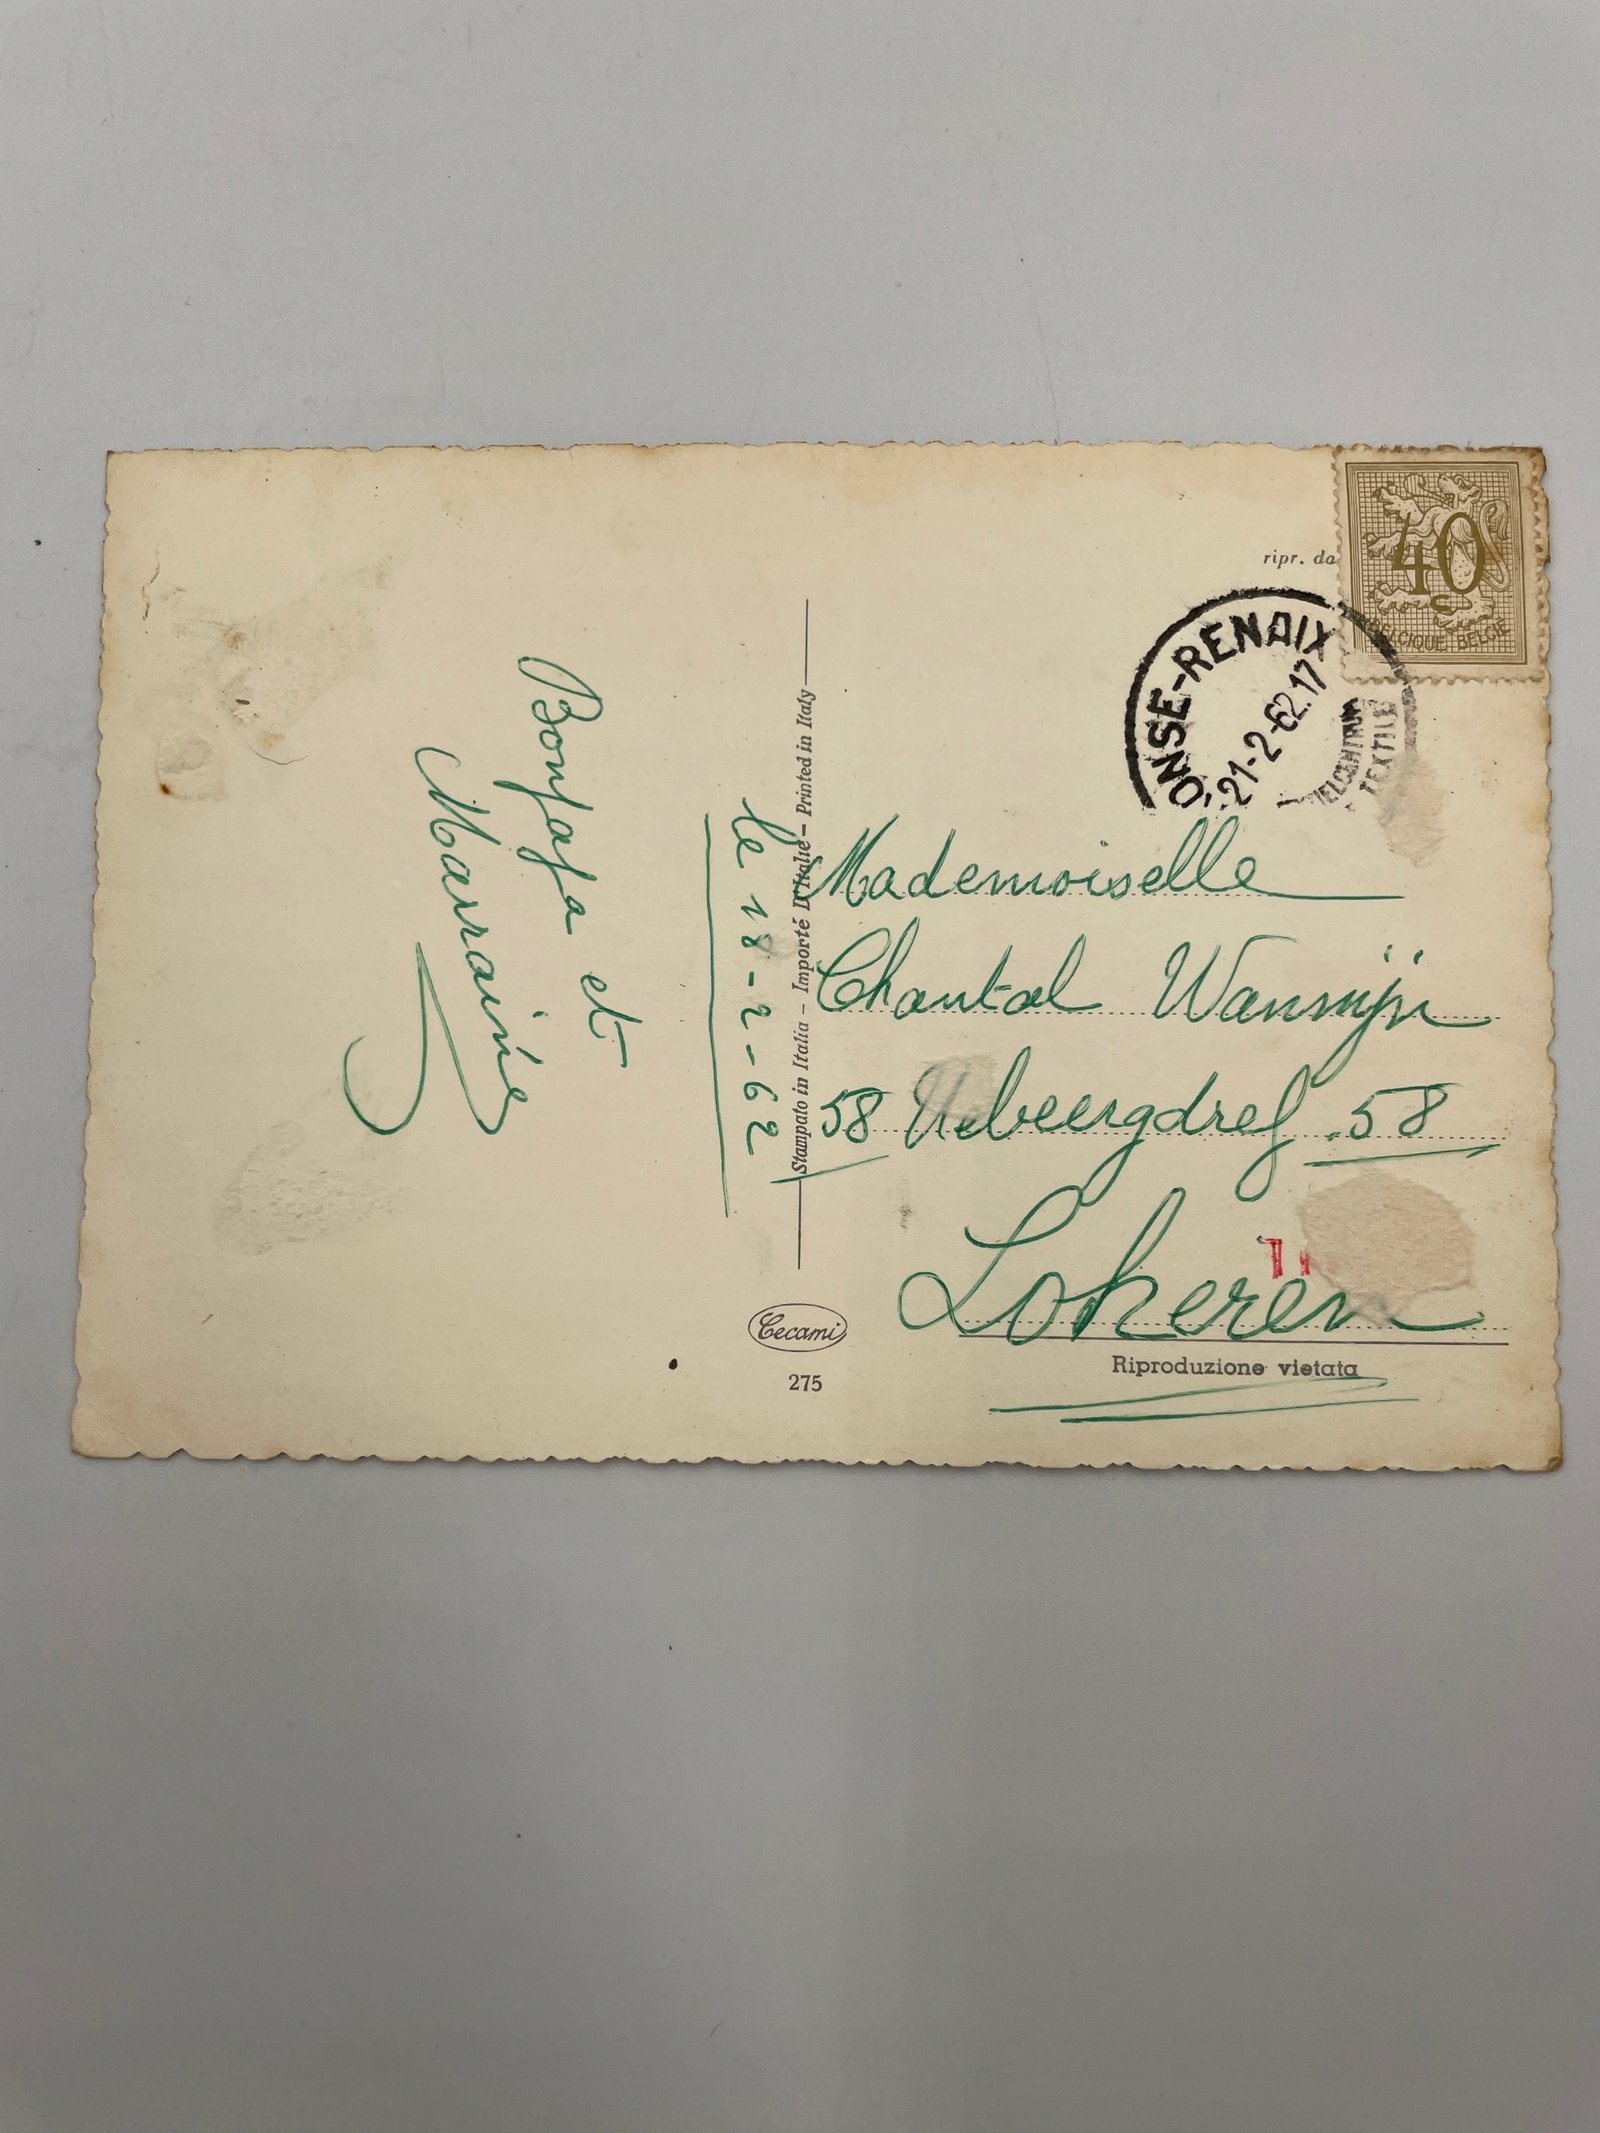 Bonpapa et
Marraine
le 18-2-62
Stampato in Italia - Importé D'Italie - Printed in Italy
Cecami
275
ripr. da
40
BELGIQUE-BELGIË
ONSE-RENAIX
21-2-62.17
TEXTILE
Mademoiselle
Chantal
58 58
Lokeren
Riproduzione vietata